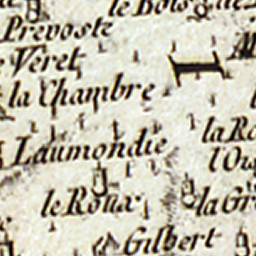 le Bois
Prevoste
le Veret
la Chambre
la Ro
Laumondie
l'Ou
le Roux
la Gr
Gilbert